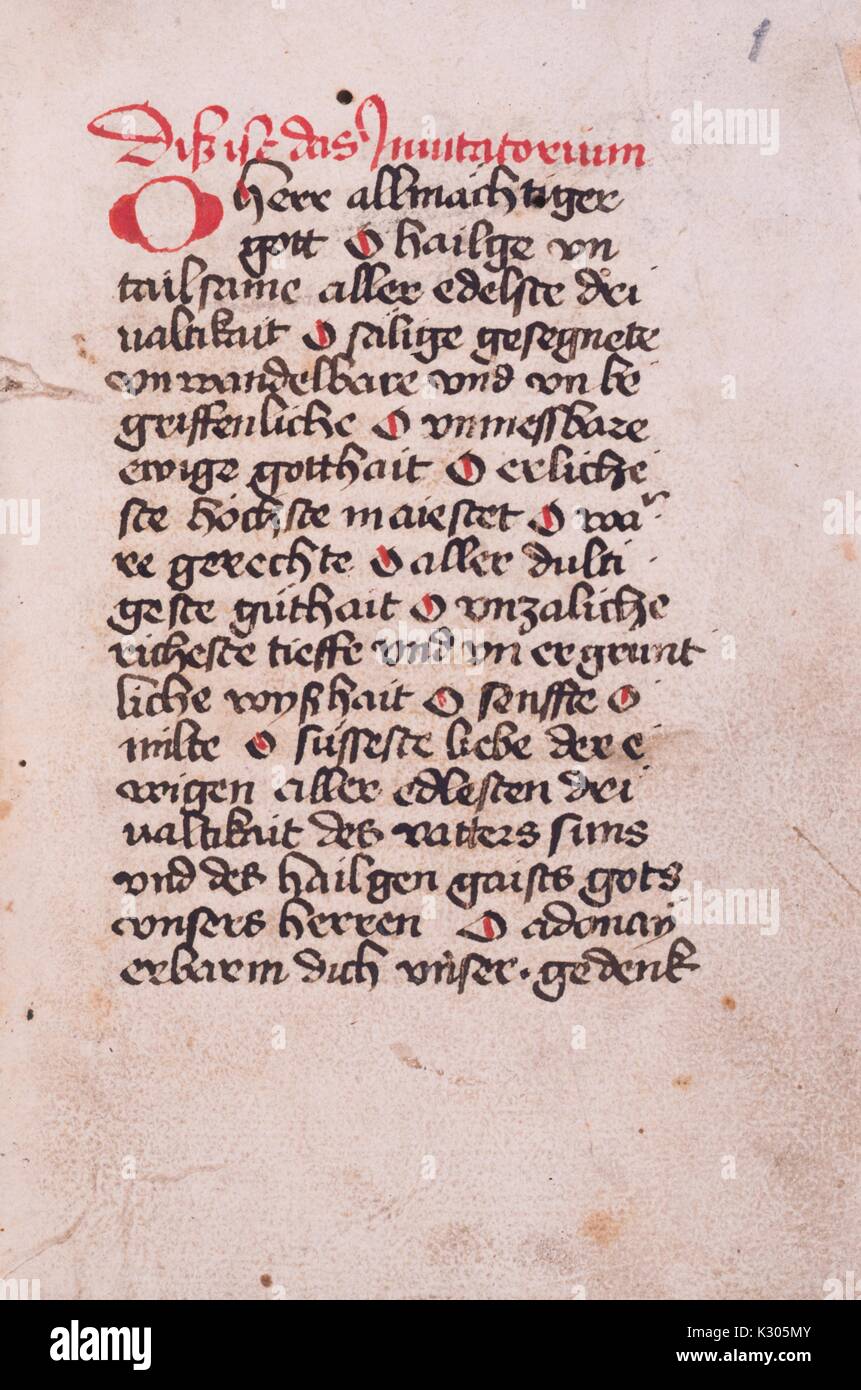 1
Diß ist das Inuitatorium
O herr allmächtiger
gott O hailge vn
tailsame aller edelste dri
ualtikait O sälige gesegnete
vnwandelbare vnd vn be
griffenliche O vnmessbare
ewige gotthait O erliche
ste höchste maiestet O wa
re gerechte O aller dulti
geste gůthait O vnzaliche
richeste tieffe vnd vn ergrunt
liche wyßhait O senffte O
milte O süsseste liebe der e
wigen aller edlesten dri
ualtikait des vatters suns
vnd des hailgen gaists gots
vnsers herren O adonay
erbarm dich vnser · gedenk
alamy
alamy
Image ID: K305MY
www.alamy.com